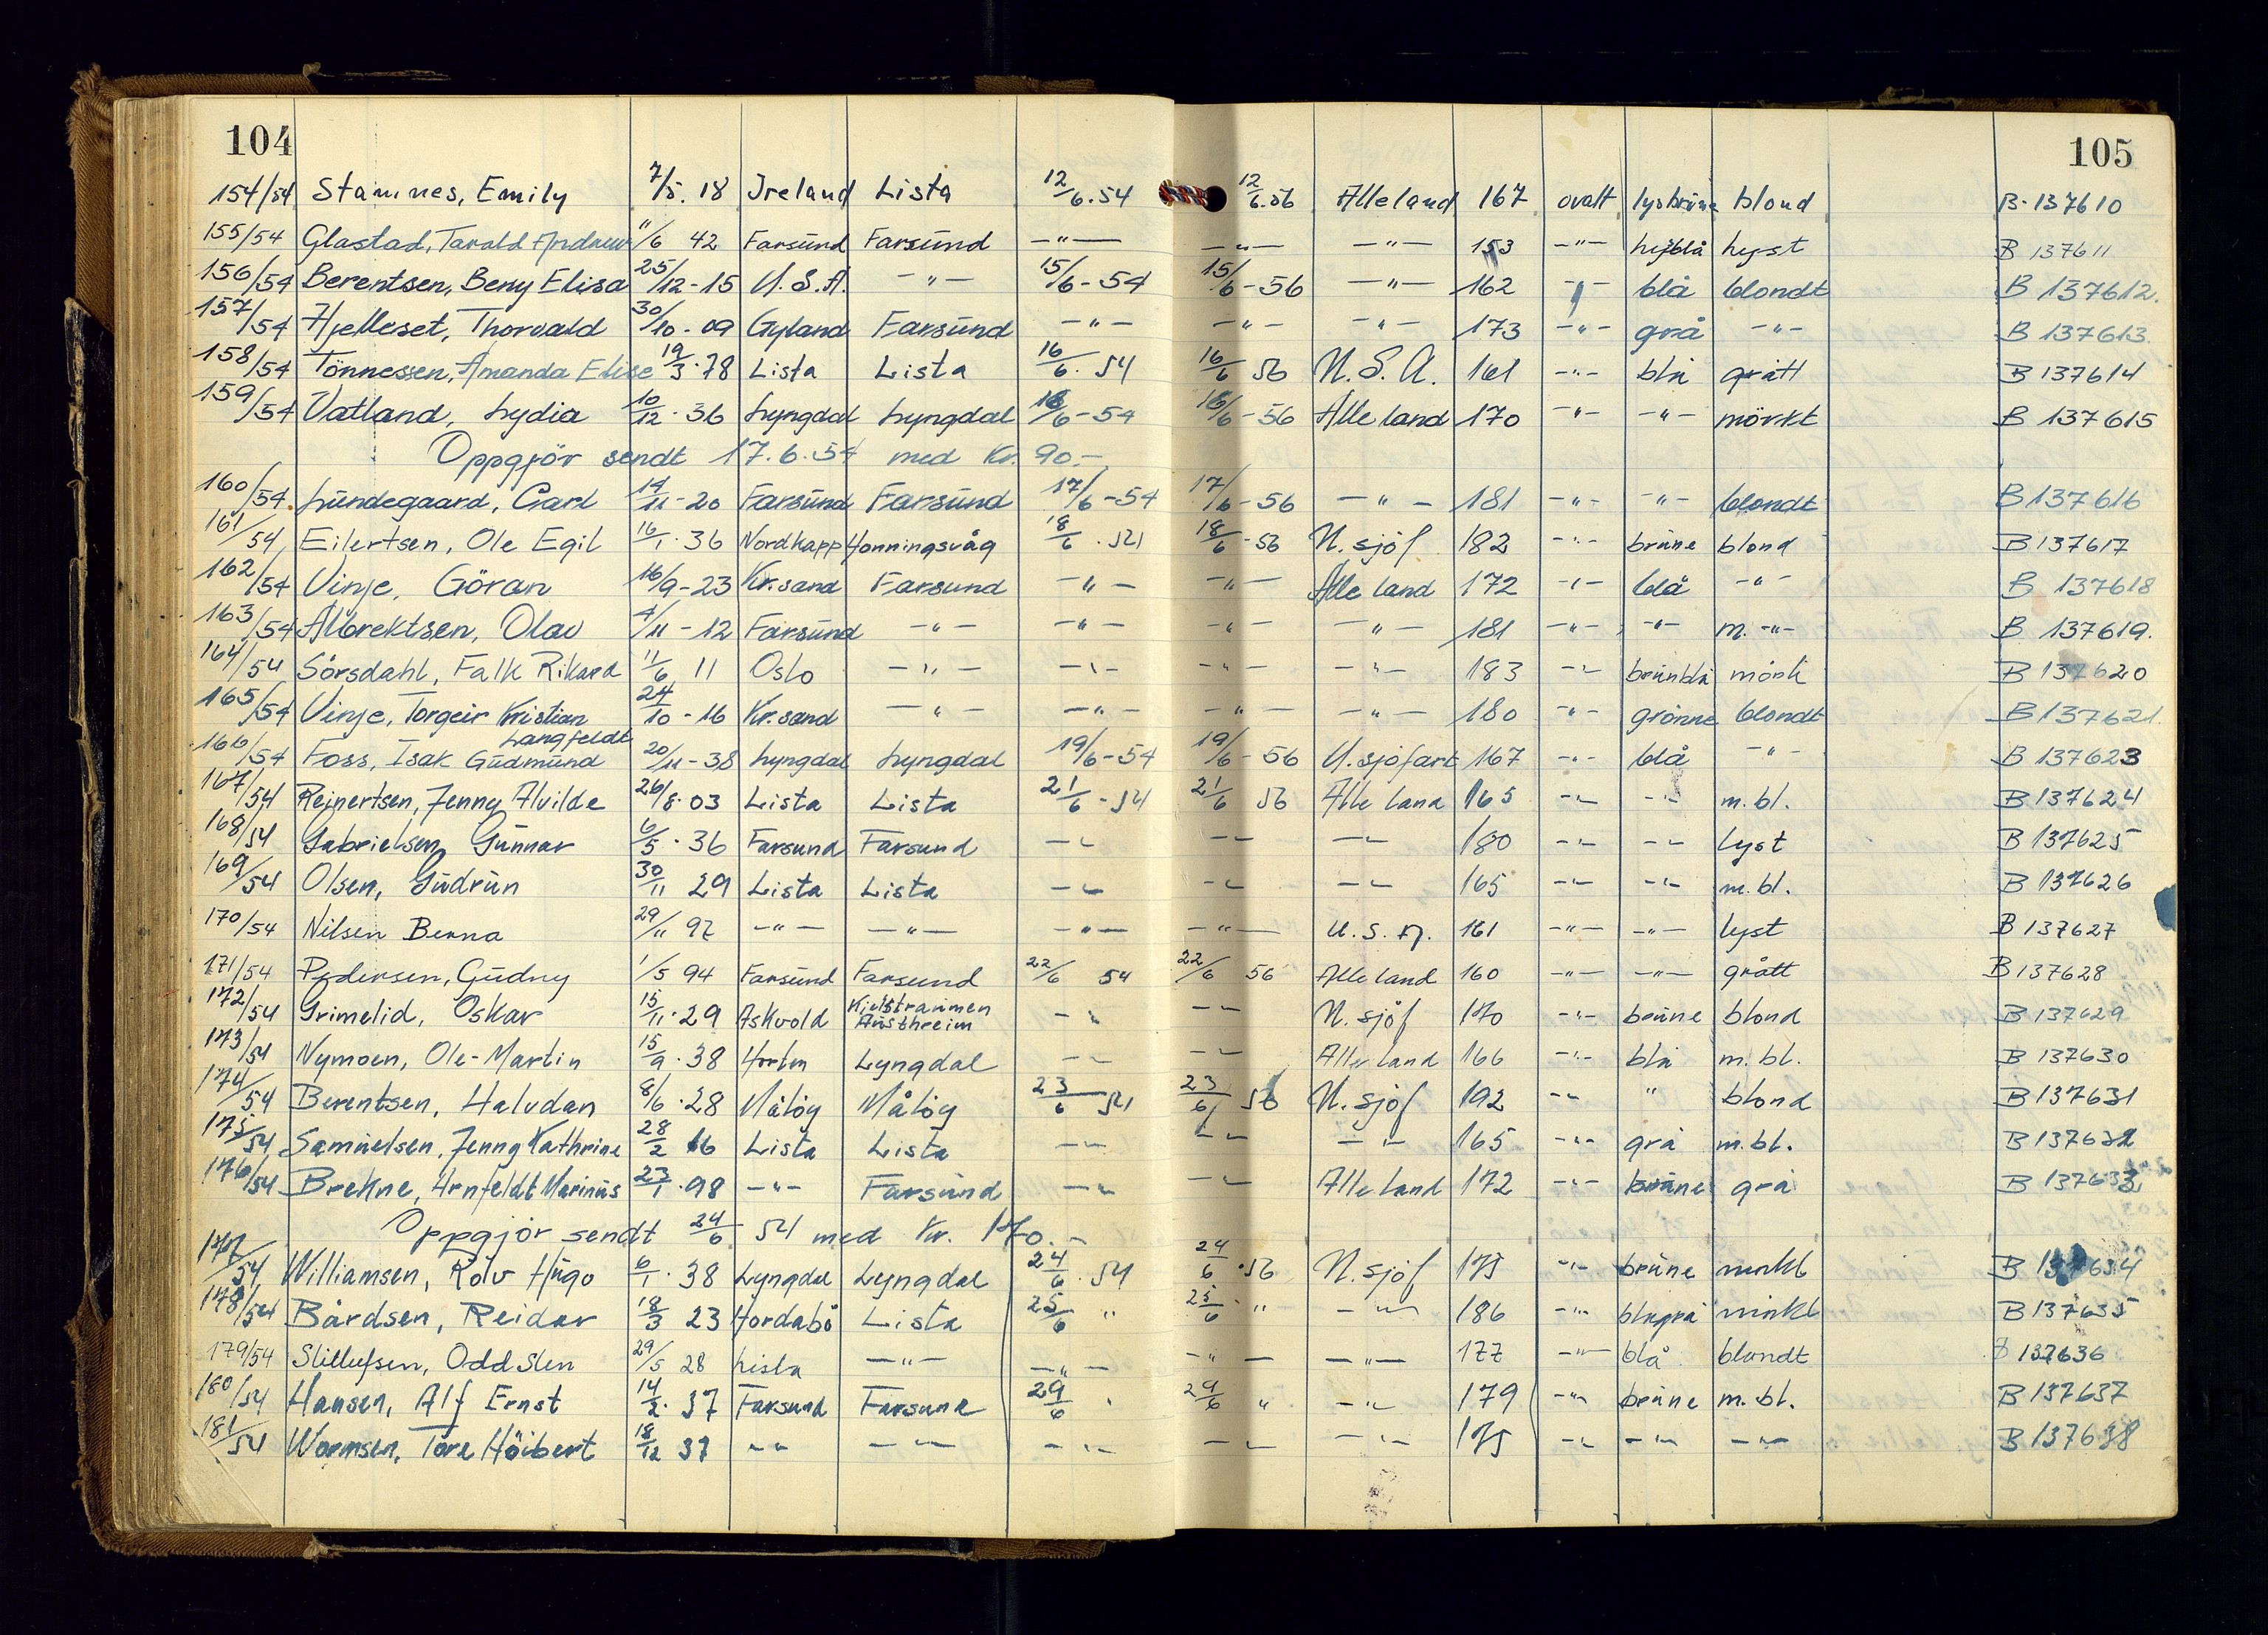 104
105
154/54 Stamnes, Emily 7/5. 18 Ireland Lista 12/6.54 12/6.56 Alle land 167 ovalt lysbrüne blond B. 137610
155/54 Glastad, Tarald Andrew 11/6 42 Farsünd Farsünd —"— —"— —"— 153 —"— lysblå lyst B 137611
156/54 Berentsen, Beny Elisa 25/12-15 U.S.A. —"— 15/6-54 15/6-56 —"— 162 —"— blå blondt B 137612.
157/54 Hjelleset, Thorvald 30/10-09 Gyland Farsünd —"— —"— —"— 173 —"— grå —"— B 137613.
158/54 Tönnessen, Amanda Elise 19/3.78 Lista Lista 16/6.54 16/6 56 U.S.A. 161 —"— blå grått B 137614
159/54 Vatland, Lydia 10/12.36 Lyngdal Lyngdal 16/6-54 16/6-56 Alle land 170 —"— —"— mörkt B 137615
Oppgjör sendt 17.6.54 med Kr. 90.-
160/54 Lündegaard, Carl 14/11-20 Farsünd Farsünd 17/6-54 17/6-56 —"— 181 —"— —"— blondt B 137616
161/54 Eilertsen, Ole Egil 16/1.36 Nordkapp Honningsvåg 18/6.54 18/6-56 U. sjöf 182 —"— brüne blond B 137617
162/54 Vinje, Göran 16/9-23 Kr.sand Farsund —"— —"— Alle land 172 —"— blå —"— B 137618
163/54 Albrektsen, Olav 4/11-12 Farsünd —"— —"— —"— —"— 181 —"— —"— m. —"— B 137619.
164/54 Sörsdahl, Falk Rikard 11/6 11 Oslo —"— —"— —"— —"— 183 —"— brünblå mörk B 137620
165/54 Vinje, Torgeir Kristian 24/10-16 Kr.sand —"— —"— —"— —"— 180 —"— grönne blondt B 137621.
Langfeldt
166/54 Foss, Isak Güdmünd 20/11-38 Lyngdal Lyngdal 19/6-54 19/6-56 U.sjöfart 167 —"— blå —"— B 137623
167/54 Reinertsen, Jenny Alvilde 26/8.03 Lista Lista 21/6-54 21/6 56 Alle land 165 —"— —"— m.bl. B 137624
168/54 Gabrielsen, Günnar 6/5.36 Farsund Farsund —"— —"— —"— 180 —"— —"— lyst B 137625
169/54 Olsen, Güdrün 30/11 29 Lista Lista —"— —"— —"— 165 —"— —"— m.bl. B 137626
170/54 Nilsen Berna 29/11 97 —"— —"— —"— —"— U.S.A. 161 —"— —"— lyst B 137627
171/54 Pedersen, Güdny 1/5 94 Farsünd Farsund 22/6 54 22/6 56 Alle land 160 —"— —"— grått B 137628
172/54 Grimelid, Oskar 15/11.29 Askvold Kjelstraumen Austhreim —"— —"— U. sjöf 170 —"— brüne blond B 137629
173/54 Nymoen, Ole-Martin 15/9.38 Horten Lyngdal —"— —"— Alle land 166 —"— blå m.bl. B 137630
174/54 Berentsen, Halvdan 8/6.28 Målöy Målöy 23/6 54 23/6 56 U. sjöf 192 —"— " blond B 137631
175/54 Samüelsen, Jenny Kathrine 28/2 16 Lista Lista —"— —"— —"— 165 —"— grå m.bl. B 137632
176/54 Brekne, Arnfeldt Marinüs 23/1.98 —"— Farsünd —"— —"— Alle land 172 —"— brüne grå B 137633
Oppgjör sendt 24/6 54 med Kr. 170.-
177/54 Williamsen, Rolv Hügo 6/1.38 Lyngdal Lyngdal 24/6.54 24/6.56 U. sjöf 175 —"— brüne mörkt B 137634
178/54 Bårdsen, Reidar 18/3 23 Hordabö Lista 25/6 " 25/6 " —"— 186 —"— blågrå mörkt B 137635
179/54 Odd Sten 29/5 28 Lista —"— —"— —"— —"— 177 —"— blå blondt B 137636
180/54 Hansen, Alf Ernst 14/2.37 Farsund Farsund 29/6 " 29/6 " —"— 179 —"— brüne m.bl. B 137637
181/54 Wormsen, Tore Höibert 18/12 37 —"— —"— —"— —"— —"— 175 —"— —"— —"— B 137638